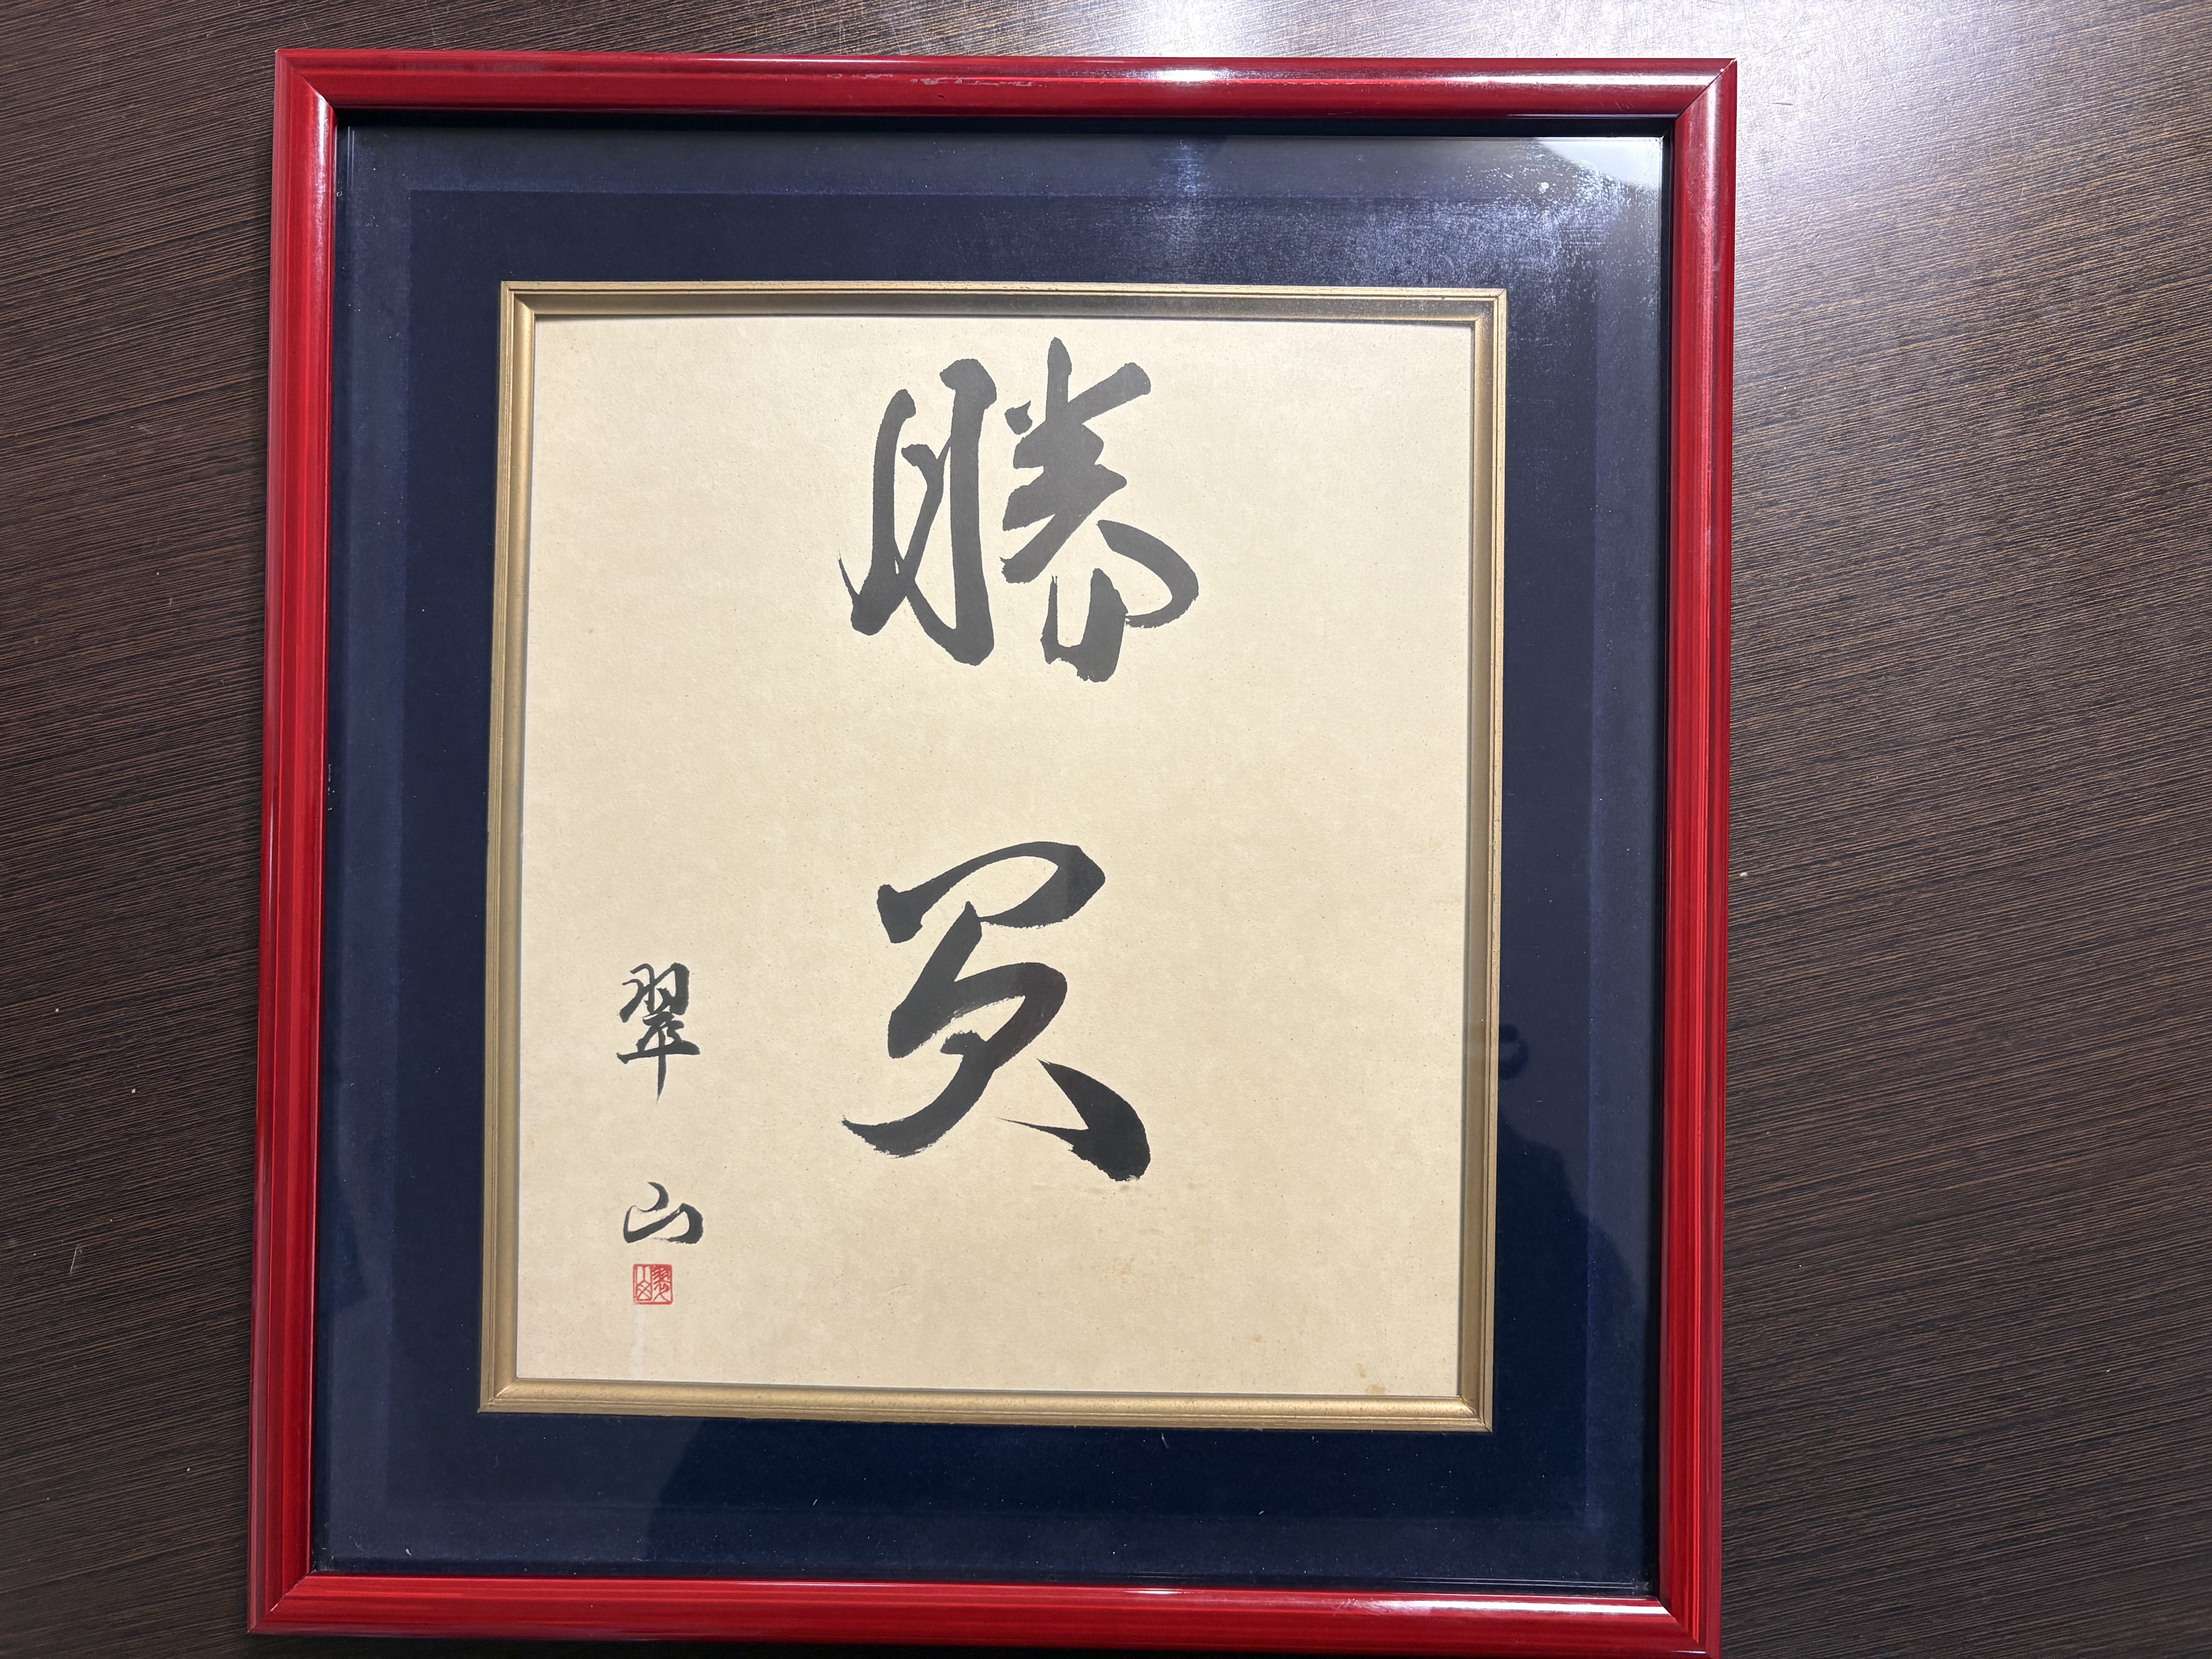 勝負
翠山